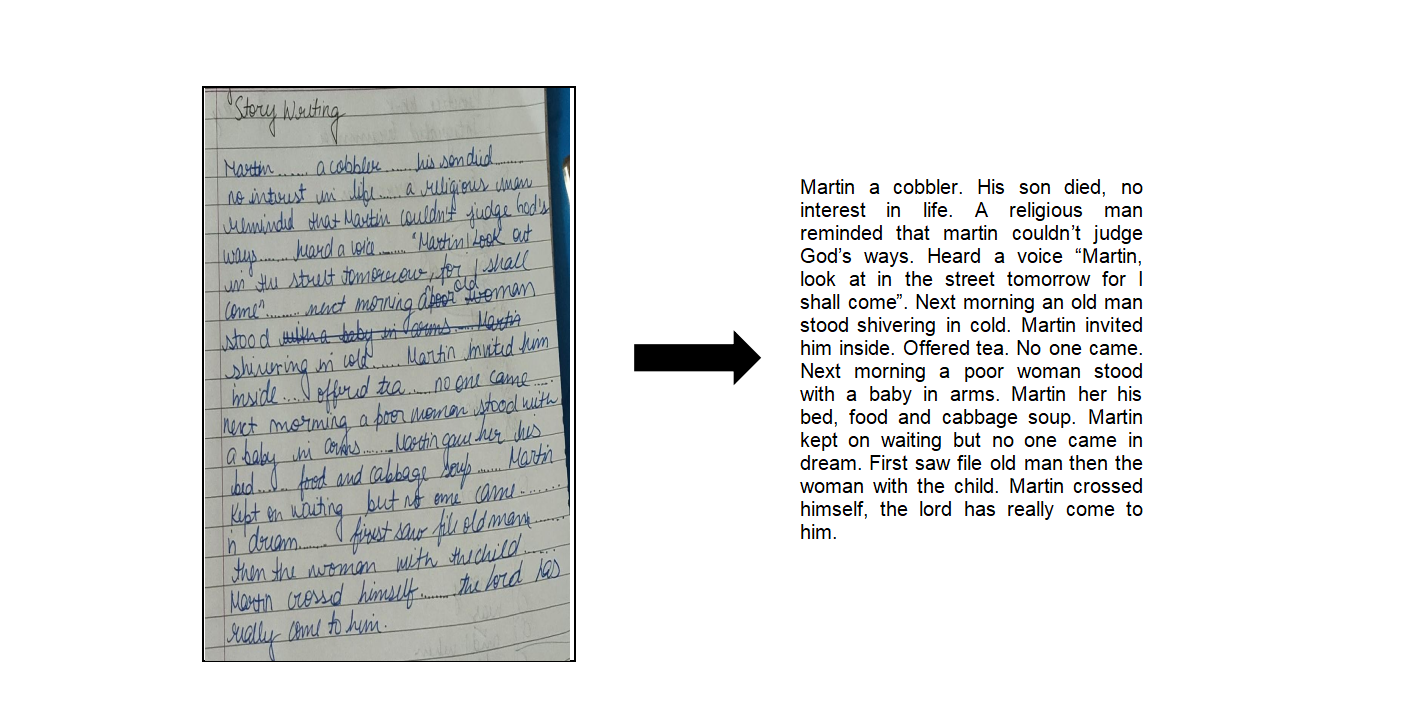 Story Writing
Martin ...... a cobbler ...... his son died ......
no interest in life ...... a religious man
reminded that Martin couldn't judge God's
ways ...... heard a voice ...... "Martin! Look out
in the street tomorrow, for I shall
come" ........ next morning old man
stood
shivering in cold ...... Martin invited him
inside .... offered tea ..... no one came ....
next morning a poor woman stood with
a baby in arms ...... Martin gave her his
bed ...... food and cabbage soup ...... Martin
kept on waiting but no one came .......
in dream ...... first saw file old man ......
then the woman with the child .....
Martin crossed himself ....... the lord has
really come to him.
Martin a cobbler. His son died, no
interest in life. A religious man
reminded that martin couldn't judge
God's ways. Heard a voice "Martin,
look at in the street tomorrow for I
shall come". Next morning an old man
stood shivering in cold. Martin invited
him inside. Offered tea. No one came.
Next morning a poor woman stood
with a baby in arms. Martin her his
bed, food and cabbage soup. Martin
kept on waiting but no one came in
dream. First saw file old man then the
woman with the child. Martin crossed
himself, the lord has really come to
him.